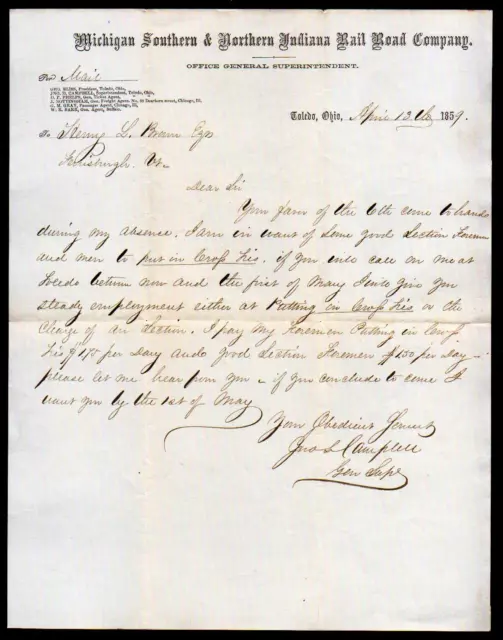 Michigan Southern & Northern Indiana Rail Road Company.
OFFICE GENERAL SUPERINTENDENT.
Per Mail
GEO. BLISS, President, Toledo, Ohio.
JNO. D. CAMPBELL, Superintendent, Toledo, Ohio.
D. P. PHELPS, Gen. Ticket Agent,
J. NOTTINGHAM, Gen. Freight Agent, No. 52 Dearborn street, Chicago, Ill.
G. M. GRAY, Passenger Agent, Chicago, Ill.
W. R. BARR, Gen. Agent, Buffalo.
Toledo, Ohio, April 12th 1859.
To Henry L. Brown Esqr
Vt.
Dear Sir
Your favr of the 6th come to hand
during my absence. I am in want of some good Section Foremen
and men to put in Cross Ties. if you will call on me at
Toledo between now and the first of May I will give you
steady employment either at Putting in Cross Ties or the
Charge of a Section. I pay my Foremen Putting in Cross
Ties $1.75 per Day and good Section Foremen $1.50 per Day
please let me hear from you - if you conclude to come I
want you by the 1st of May
Your Obedient Servt
Jno D Campbell
Gen Supt